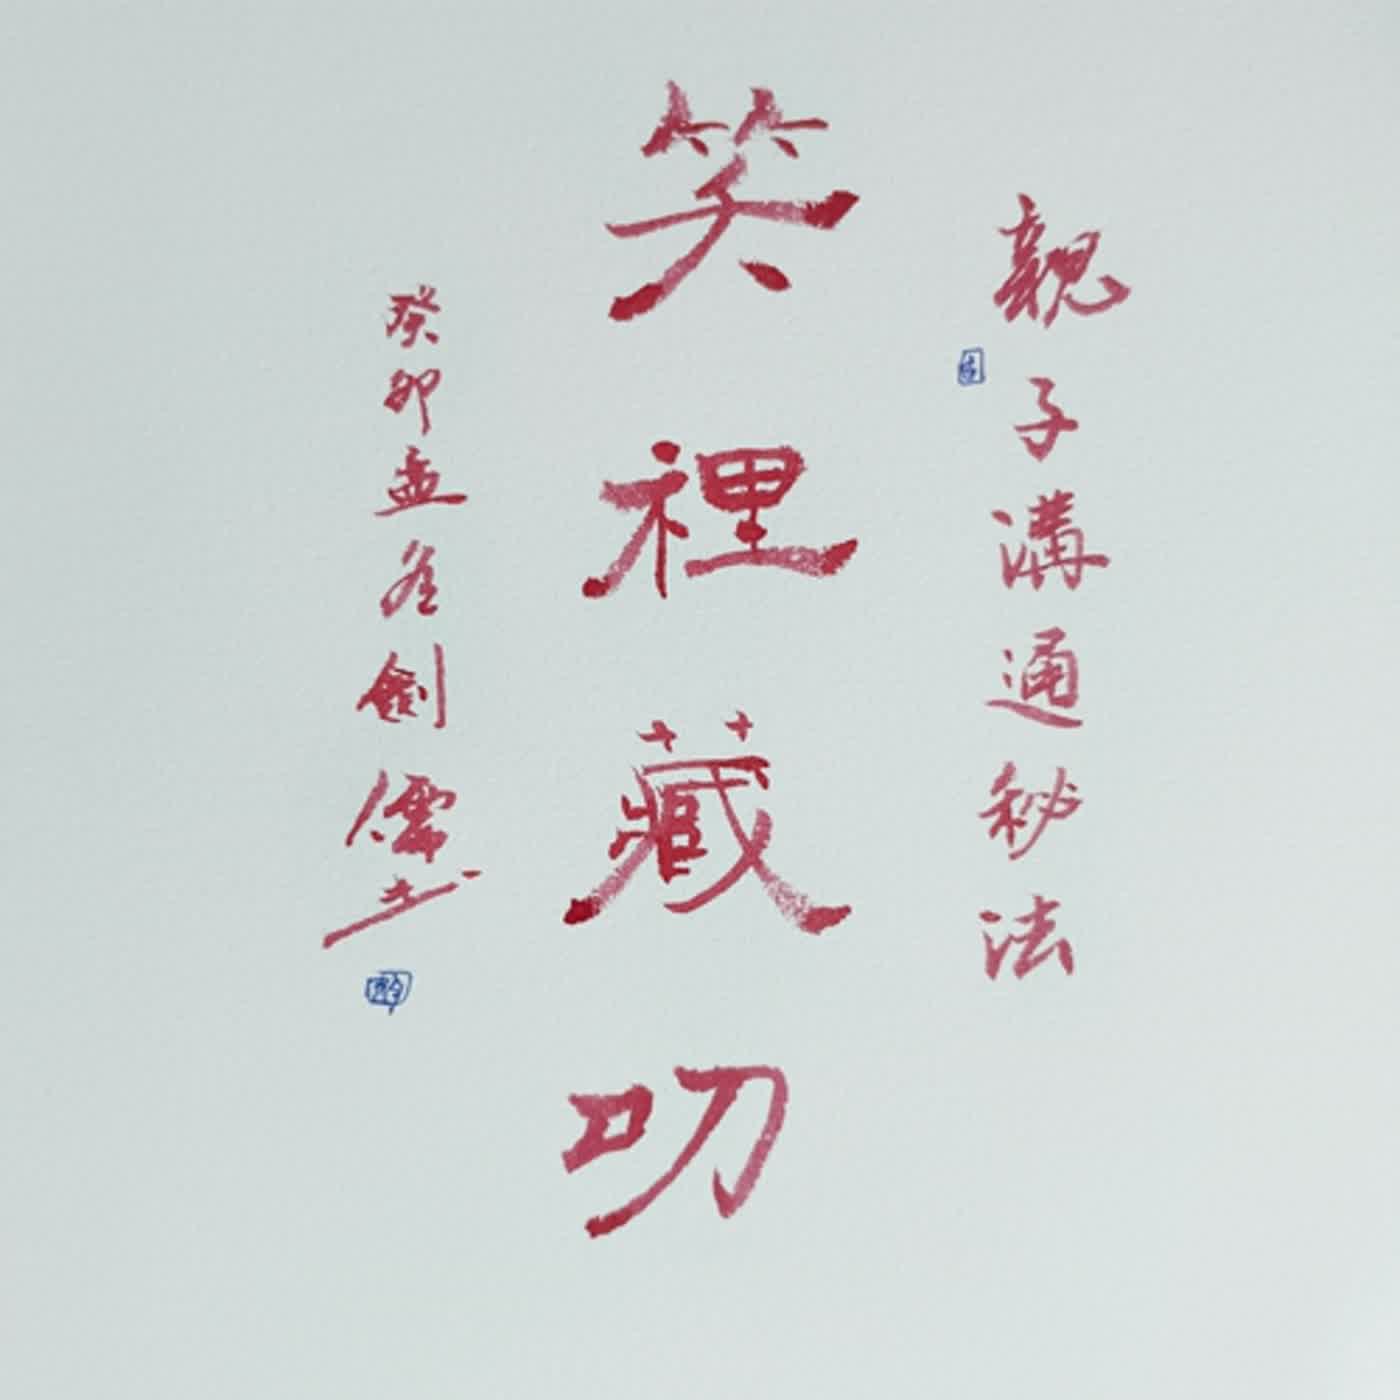 親子溝通秘法
笑裡藏叨
癸卯孟冬劍儒